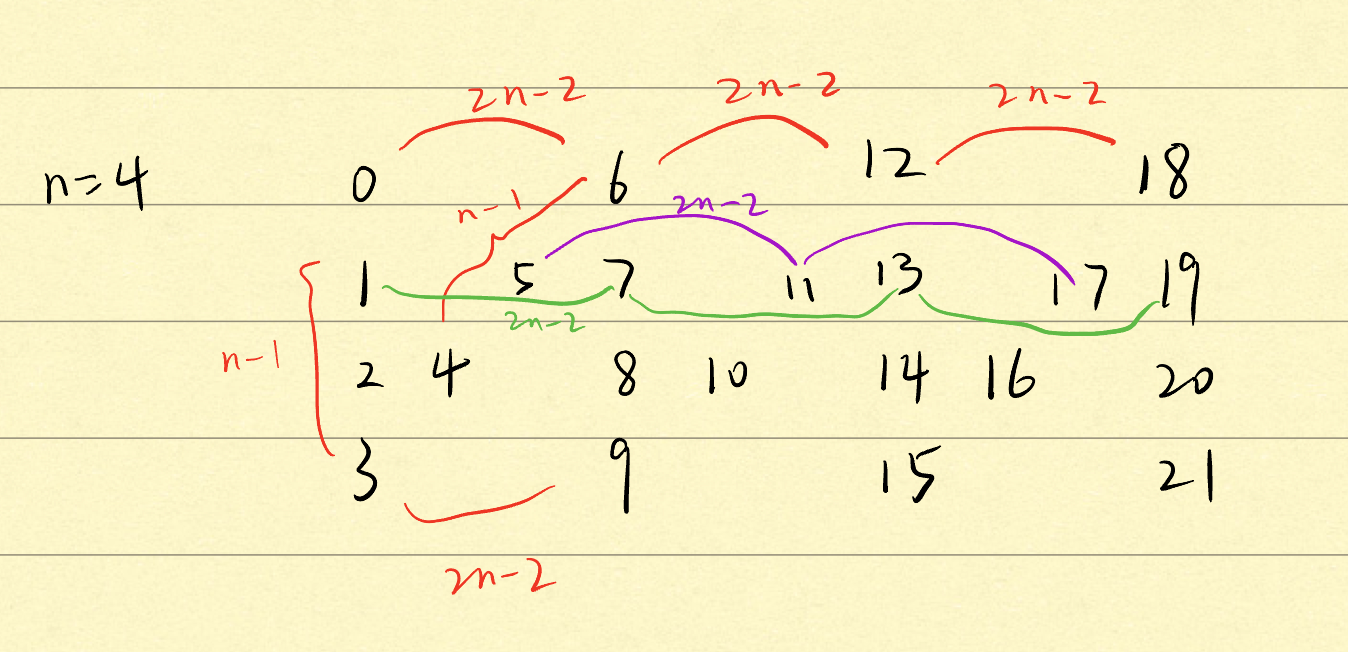 2n-2 2n-2 2n-2
n=4 0 6 12 18
n-1 2n-2
1 5 7 11 13 17 19
2n-2
n-1 2 4 8 10 14 16 20
3 9 15 21
2n-2